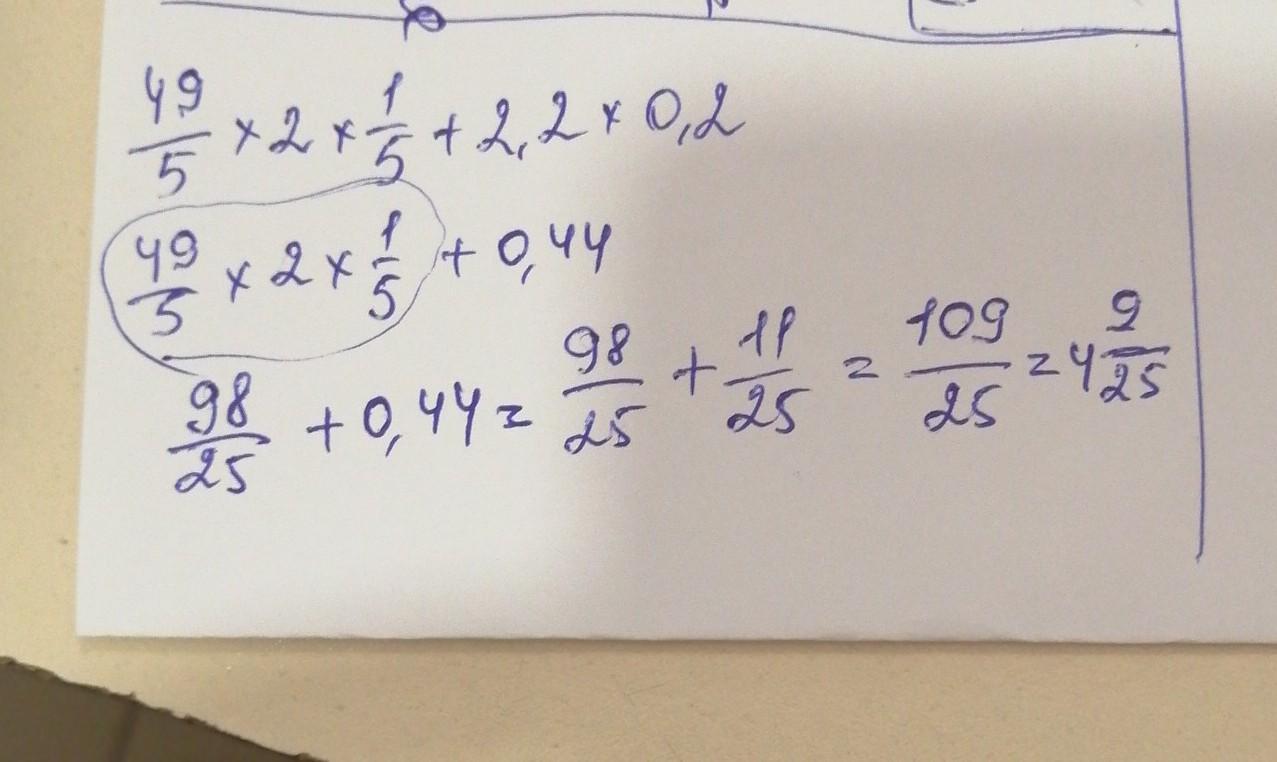 49/5 × 2 × 1/5 + 2,2 × 0,2
49/5 × 2 × 1/5 + 0,44
98/25 + 0,44 = 98/25 + 11/25 = 109/25 = 4 9/25